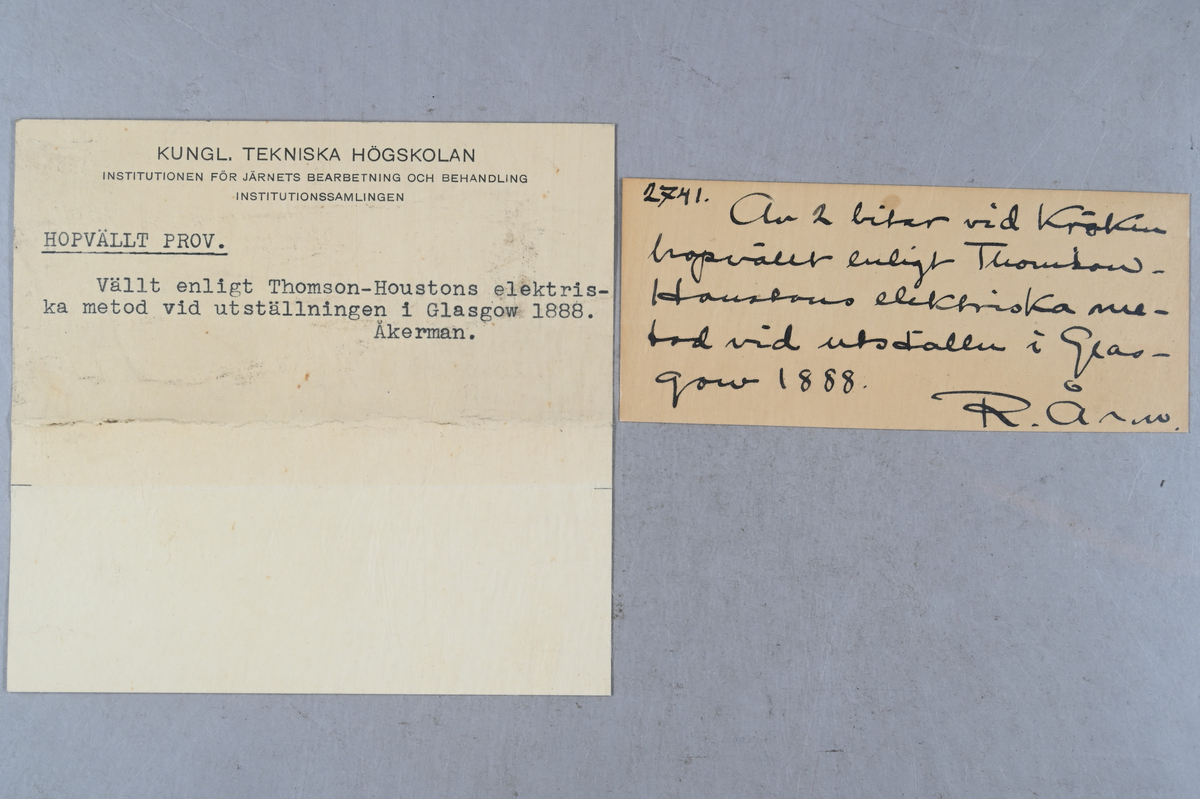 KUNGL. TEKNISKA HÖGSKOLAN
INSTITUTIONEN FÖR JÄRNETS BEARBETNING OCH BEHANDLING
INSTITUTIONSSAMLINGEN
HOPVÄLLT PROV.
Vällt enligt Thomson-Houstons elektris-
ka metod vid utställningen i Glasgow 1888.
Åkerman.
2741.
Av 2 bitar vid Kröken
hopvällt enligt Thomson-
Houstons elektriska me-
tod vid utställn i Glas-
gow 1888.
R. Å